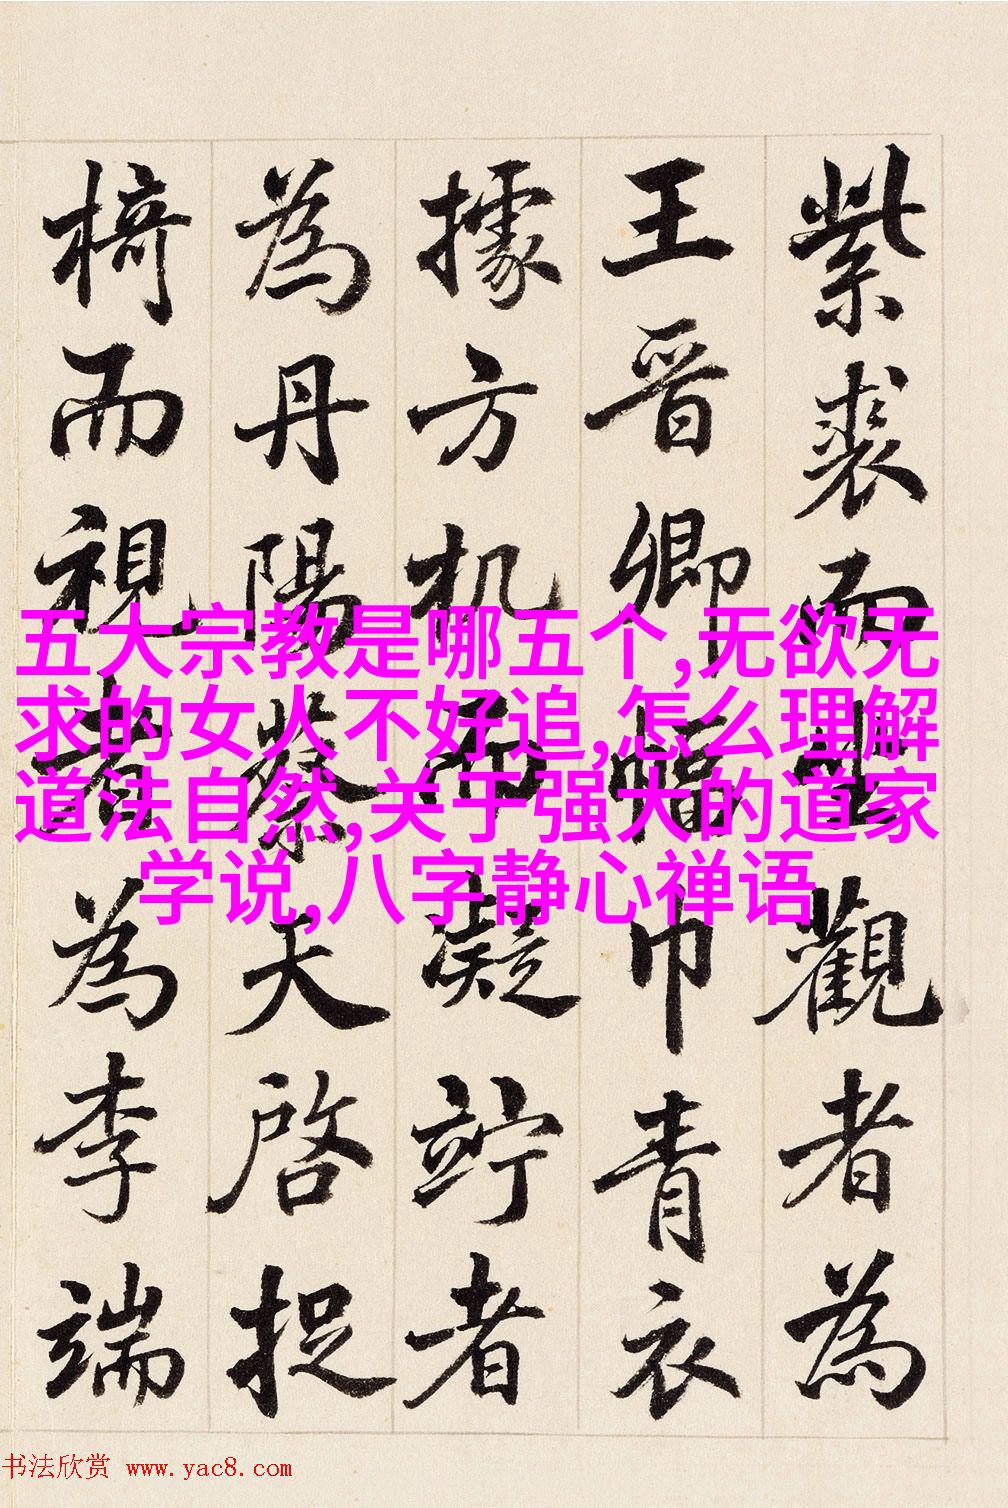 紫裘而坐觀者為
王晋卿幅巾青衣
據方机而凝竚者
為丹陽蔡天啓捉
椅而視者為李端
五大宗教是哪五个,无欲无
求的女人不好追,怎么理解
道法自然,关于强大的道家
学说,八字静心禅语
书法欣赏 www.yac8.com